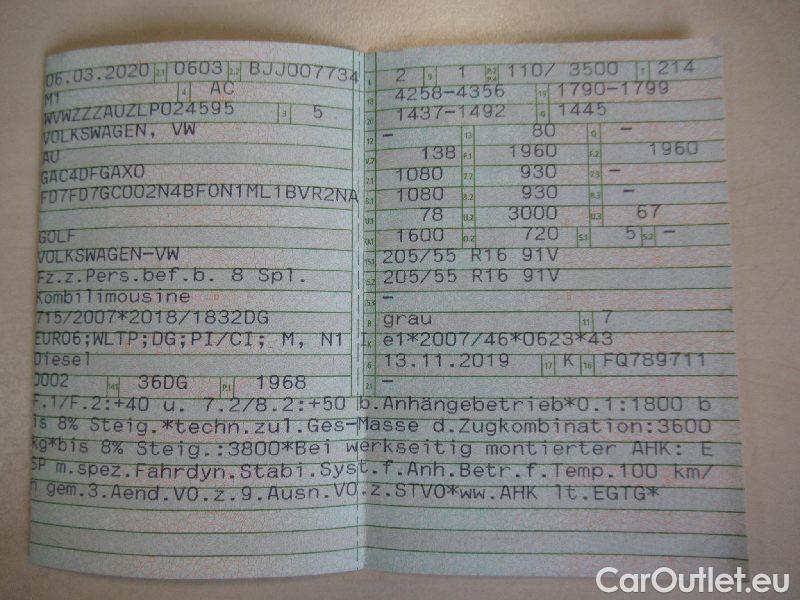 06.03.2020 2.1 0603 2.2 BJJ007734
M1 4 AC
WVWZZZAUZLP024595 3 5
VOLKSWAGEN, VW
AU
GAC4DFGAX0
FD7FD7GC002N4BF0N1ML1BVR2NA
GOLF
VOLKSWAGEN-VW
Fz.z.Pers.bef.b. 8 Spl.
Kombilimousine
715/2007*2018/1832DG
EURO6;WLTP;DG;PI/CI; M, N1 I
Diesel
0002 14.1 36DG P.1 1968
L 2 9 1 P.2 P.4 110/ 3500 T 214
18 4258-4356 19 1790-1799
20 1437-1492 G 1445
– 13 80 Q –
V.7 138 F.1 1960 F.2 1960
7.1 1080 7.2 930 7.3 –
8.1 1080 8.2 930 8.3 –
U.1 78 U.2 3000 U.3 67
O.1 1600 O.2 720 S.1 5 S.2 –
15.1 205/55 R16 91V
15.2 205/55 R16 91V
15.3 –
R grau 11 7
K e1*2007/46*0623*43
6 13.11.2019 17 K 16 FQ789711
21 –
F.1/F.2:+40 u. 7.2/8.2:+50 b.Anhängebetrieb*O.1:1800 b
is 8% Steig.*techn.zul.Ges-Masse d.Zugkombination:3600
kg*bis 8% Steig.:3800*Bei werkseitig montierter AHK: E
SP m.spez.Fahrdyn.Stabi.Syst.f.Anh.Betr.f.Temp.100 km/
h gem.3.Aend.VO.z.9.Ausn.VO.z.STVO*ww.AHK lt.EGTG*
CarOutlet.eu